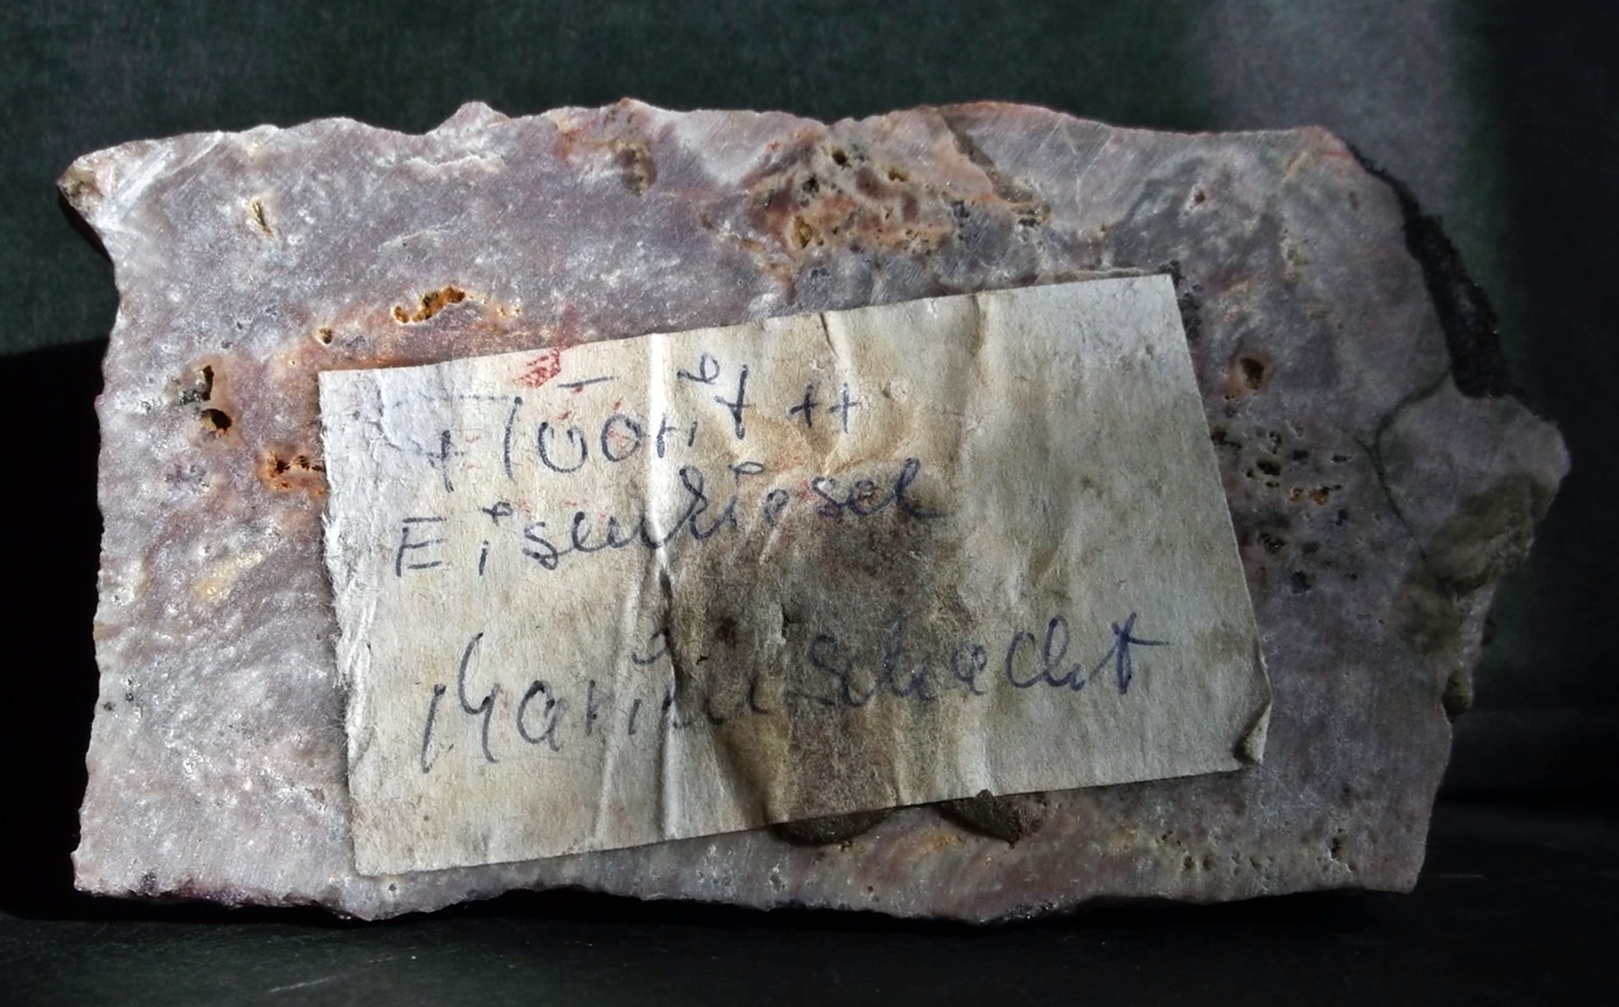 Flūorit ++
Eisenkiesel
Marienschacht